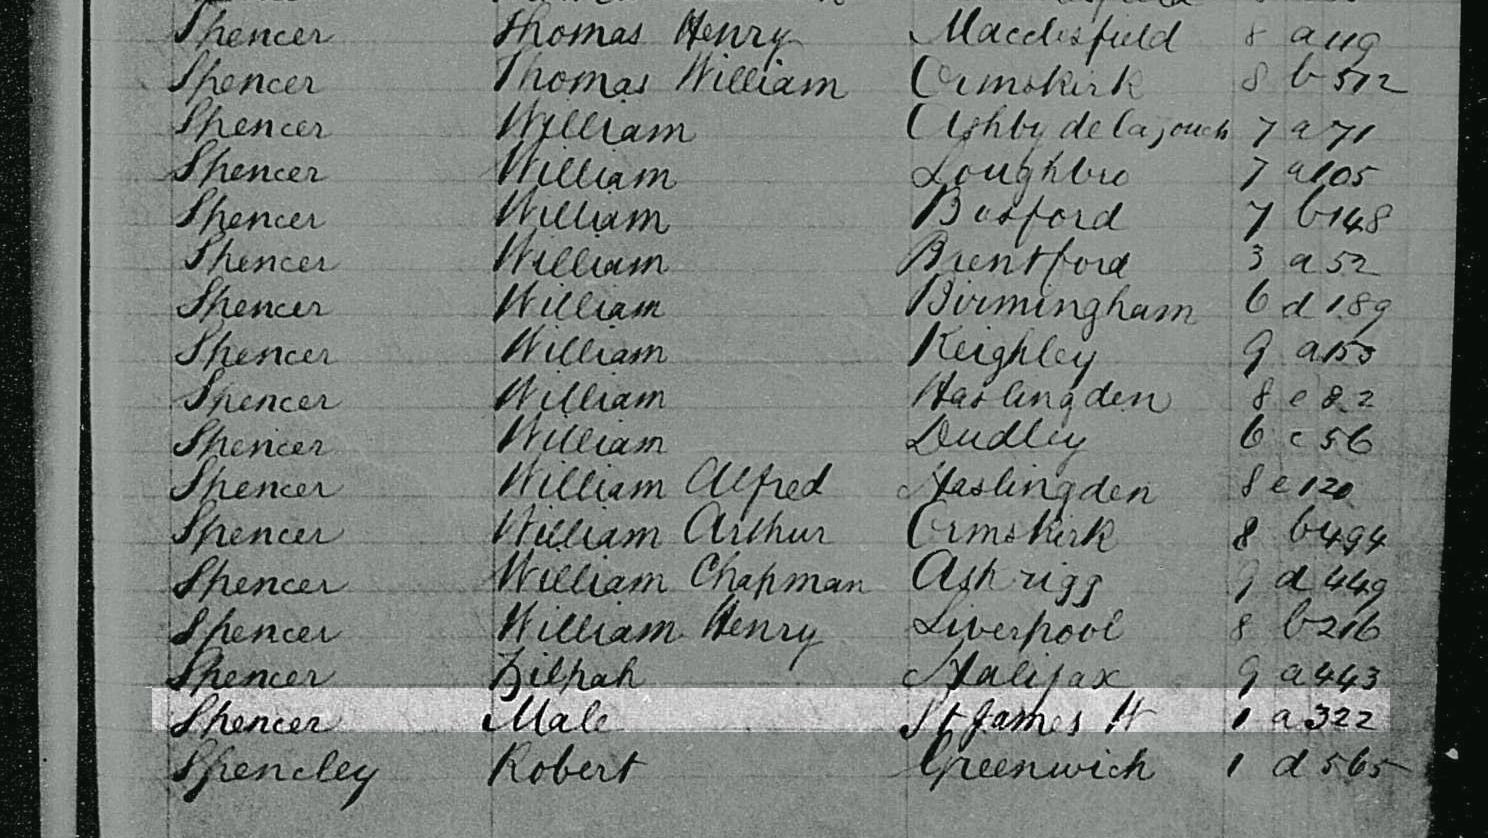 Spencer Thomas Henry Macclesfield 8 a 119
Spencer Thomas William Ormskirk 8 b 512
Spencer William Ashby de la Zouch 7 a 71
Spencer William Loughbro 7 a 105
Spencer William Basford 7 b 148
Spencer William Brentford 3 a 52
Spencer William Birmingham 6 d 189
Spencer William Keighley 9 a 155
Spencer William Haslingden 8 e 82
Spencer William Dudley 6 c 56
Spencer William Alfred Haslingden 8 e 120
Spencer William Arthur Ormskirk 8 b 494
Spencer William Chapman Askrigg 9 d 449
Spencer William Henry Liverpool 8 b 216
Spencer Zilpah Halifax 9 a 443
Spencer Male St James W 1 a 322
Spencley Robert Greenwich 1 d 565